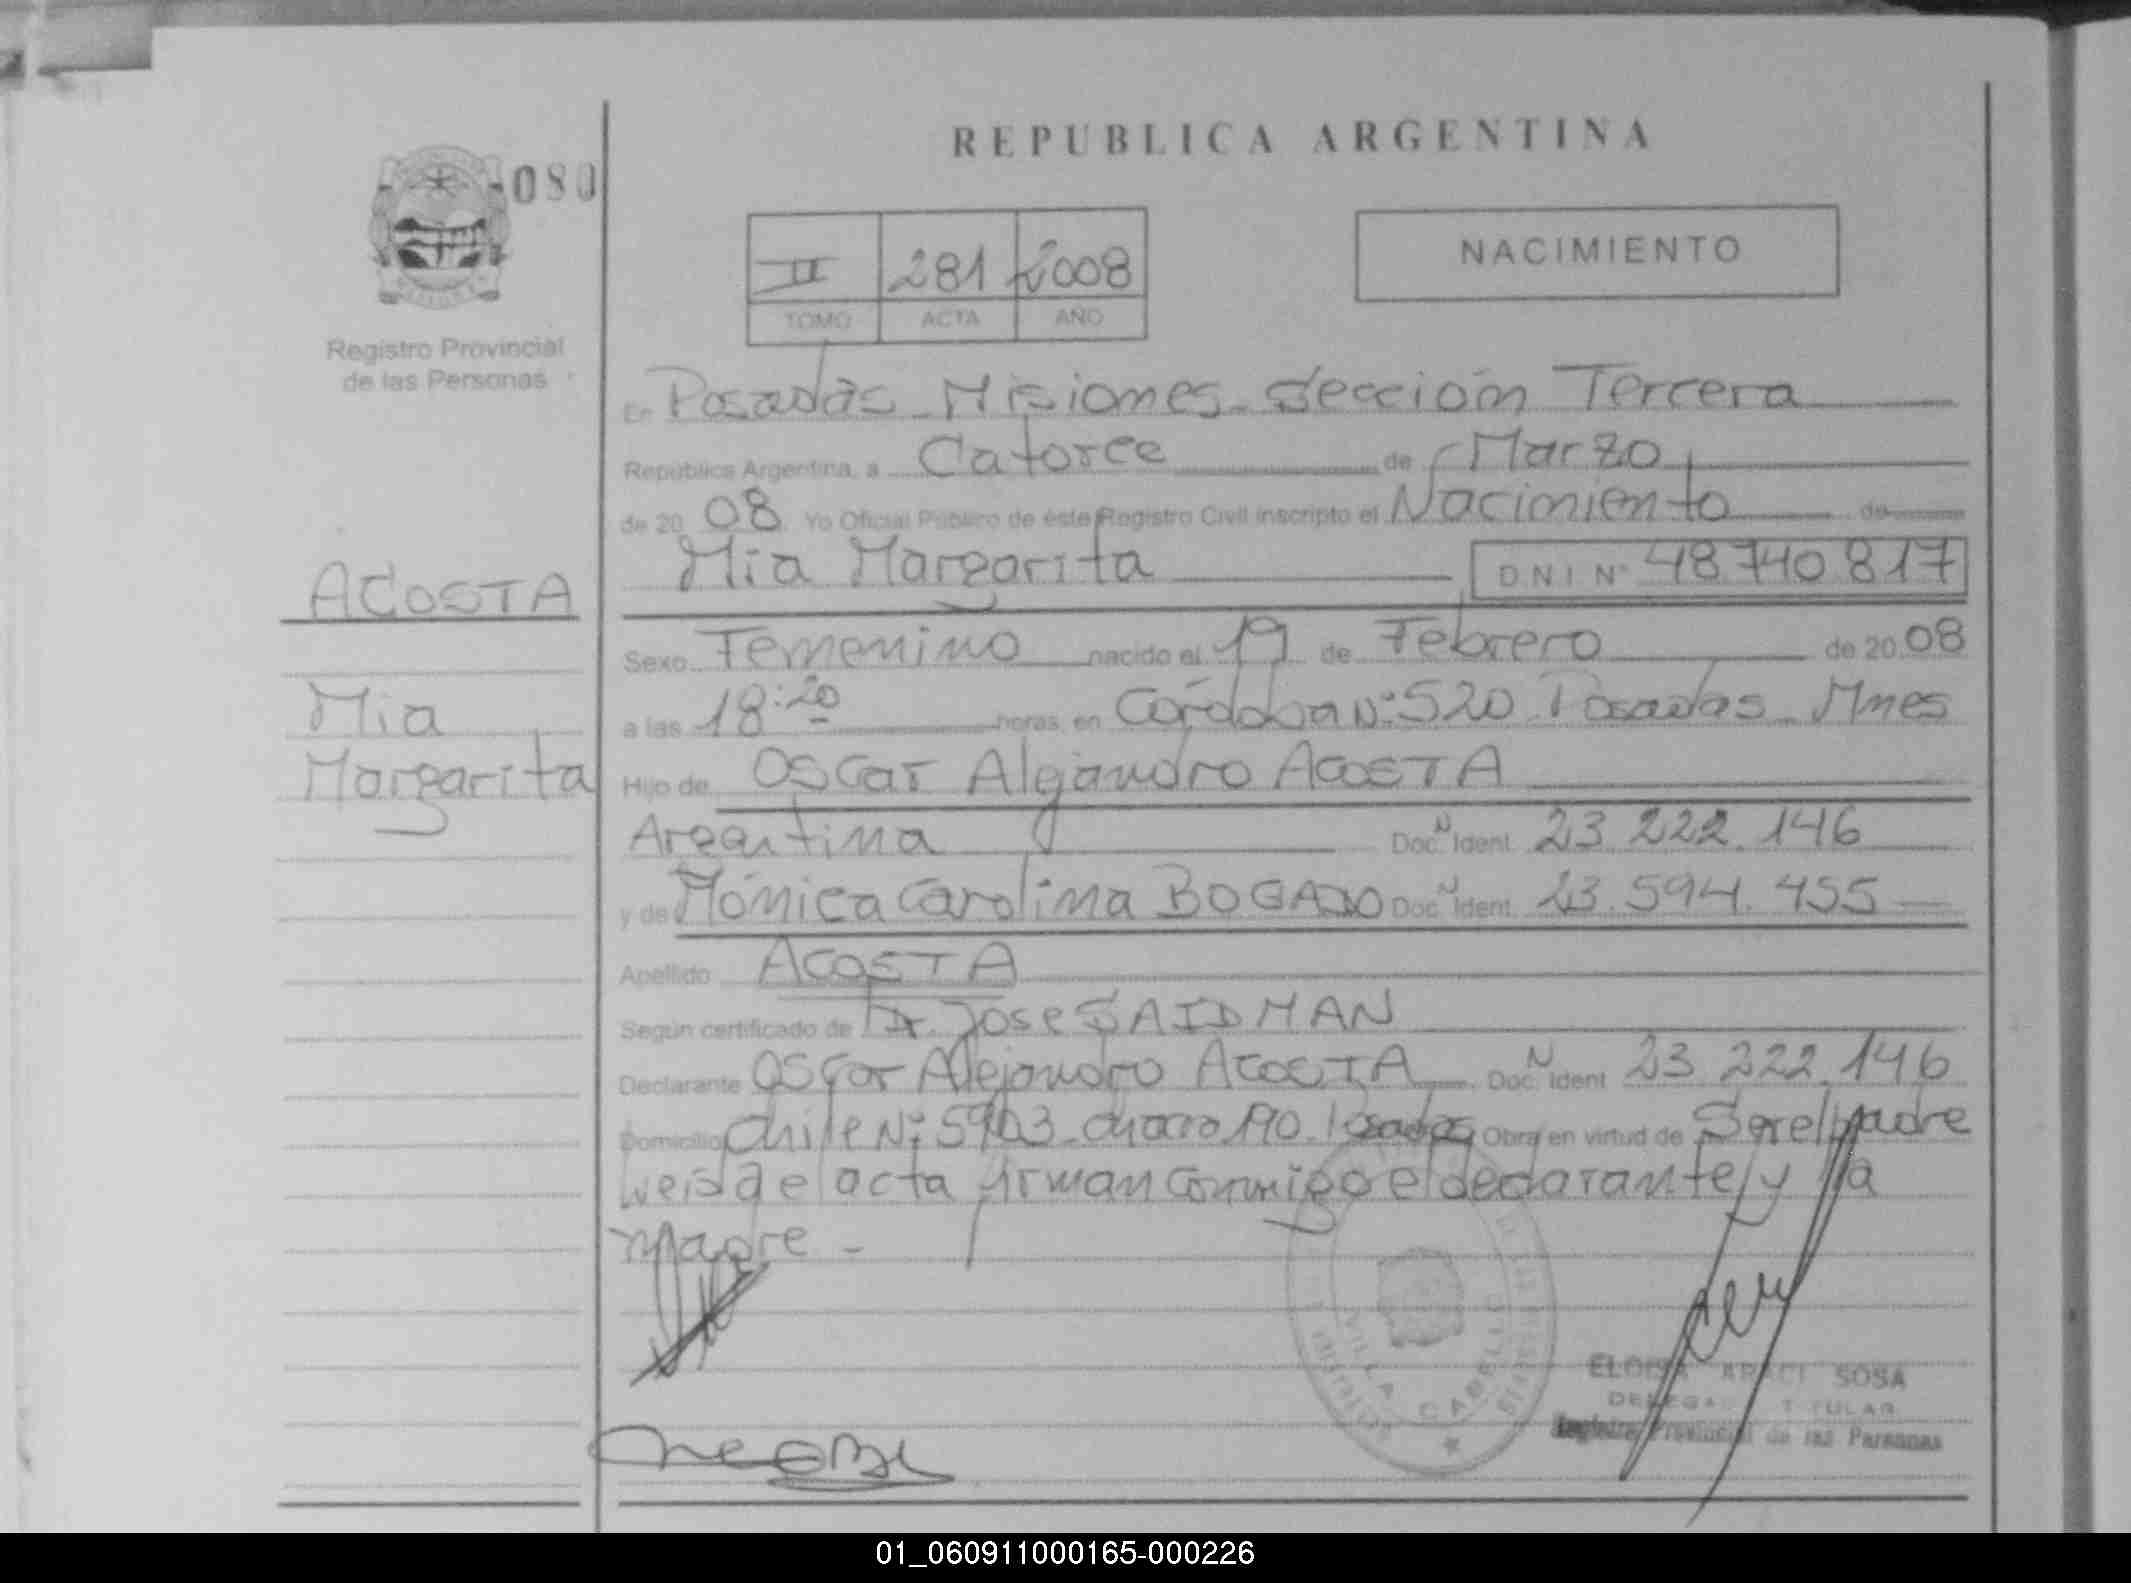 REPUBLICA ARGENTINA
080
NACIMIENTO
II 281 2008
TOMO ACTA AÑO
Registro Provincial
de las Personas
En Posadas Misiones Sección Tercera
República Argentina, a Catorce de Marzo
de 20 08 Yo Oficial Público de éste Registro Civil inscripto el Nacimiento de
Mia Margarita DNI Nº 48.740.817
ACOSTA
Mia
Margarita
Sexo Femenino nacido el 19 de Febrero de 20 08
a las 18:20 horas, en Córdoba Nº 520 Posadas Mnes
Hijo de Oscar Alejandro ACOSTA
Argentina Doc. N Ident. 23.222.146
y de Mónica Carolina BOGADO Doc. N Ident. 23.594.455
Apellido ACOSTA
Según certificado de Dr. Jose SAIDMAN
Declarante Oscar Alejandro ACOSTA Doc. N Ident. 23.222.146
Domicilio Chile Nº Posadas Obra en virtud de Ser el padre
leida el acta firman conmigo el declarante y la
madre -
VILLA CABELLO
ELOISA ARACI SOSA
DELEGADA TITULAR
Registro Provincial de las Personas
01_060911000165-000226